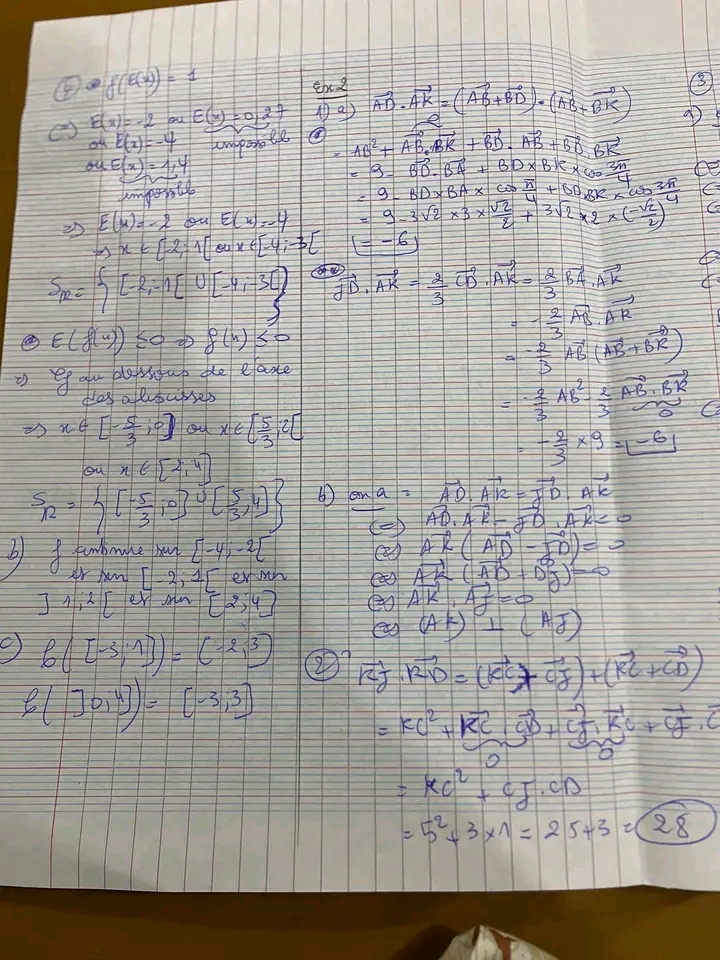 f(E(x)) = 1
(=) E(x)=-2 ou E(x)=0,27
impossible
ou E(x)=-4
ou E(x)=1,4
impossible
=> E(x)=-2 ou E(x)=-4
=> x ∈ [-2;-1[ ou x ∈ [-4;-3[
S_R = { [-2;-1[ ∪ [-4;-3[ }
E(f(x)) ≤ 0 => f(x) ≤ 0
=> Cf au dessous de l'axe
des abscisses
=> x ∈ [-5/3 ; 0] ou x ∈ [5/3 ; 2[
ou x ∈ [2;4]
S_R = { [-5/3 ; 0] ∪ [5/3 ; 4] }
b) f continue sur [-4;-2[
et sur [-2;1[ et sur
]1;2[ et sur [2;4]
c) f([-3;1]) = (-2;3)
f(]0;4]) = [-3;3]
Ex2
1) a) AD.AK = (AB+BD).(AB+BK)
= AB² + AB.BK + BD.AB + BD.BK
= 9 - BD.BA + BD×BK×cos 3π/4
= 9 - BD×BA× cos π/4 + BD.BK × cos 3π/4
= 9 - 3√2 × 3 × √2/2 + 3√2 × 2 × (-√2/2)
= -6
JD.AK = 2/3 CD.AK = 2/3 BA.AK
= -2/3 AB.AK
= -2/3 AB(AB+BK)
= -2/3 AB² - 2/3 AB.BK
0
= -2/3 × 9 = -6
b) on a = AD.AK = JD.AK
(=) AD.AK - JD.AK = 0
(=) AK(AD - JD) = 0
(=) AK(AD + DJ) = 0
(=) AK.AJ = 0
(=) (AK) ⊥ (AJ)
2) KJ.KD = (KC+CJ)+(KC+CD)
= KC² + KC.CD + CJ.KC + CJ.C
0 0
= KC² + CJ.CD
= 5² + 3×1 = 25+3 = 28
3